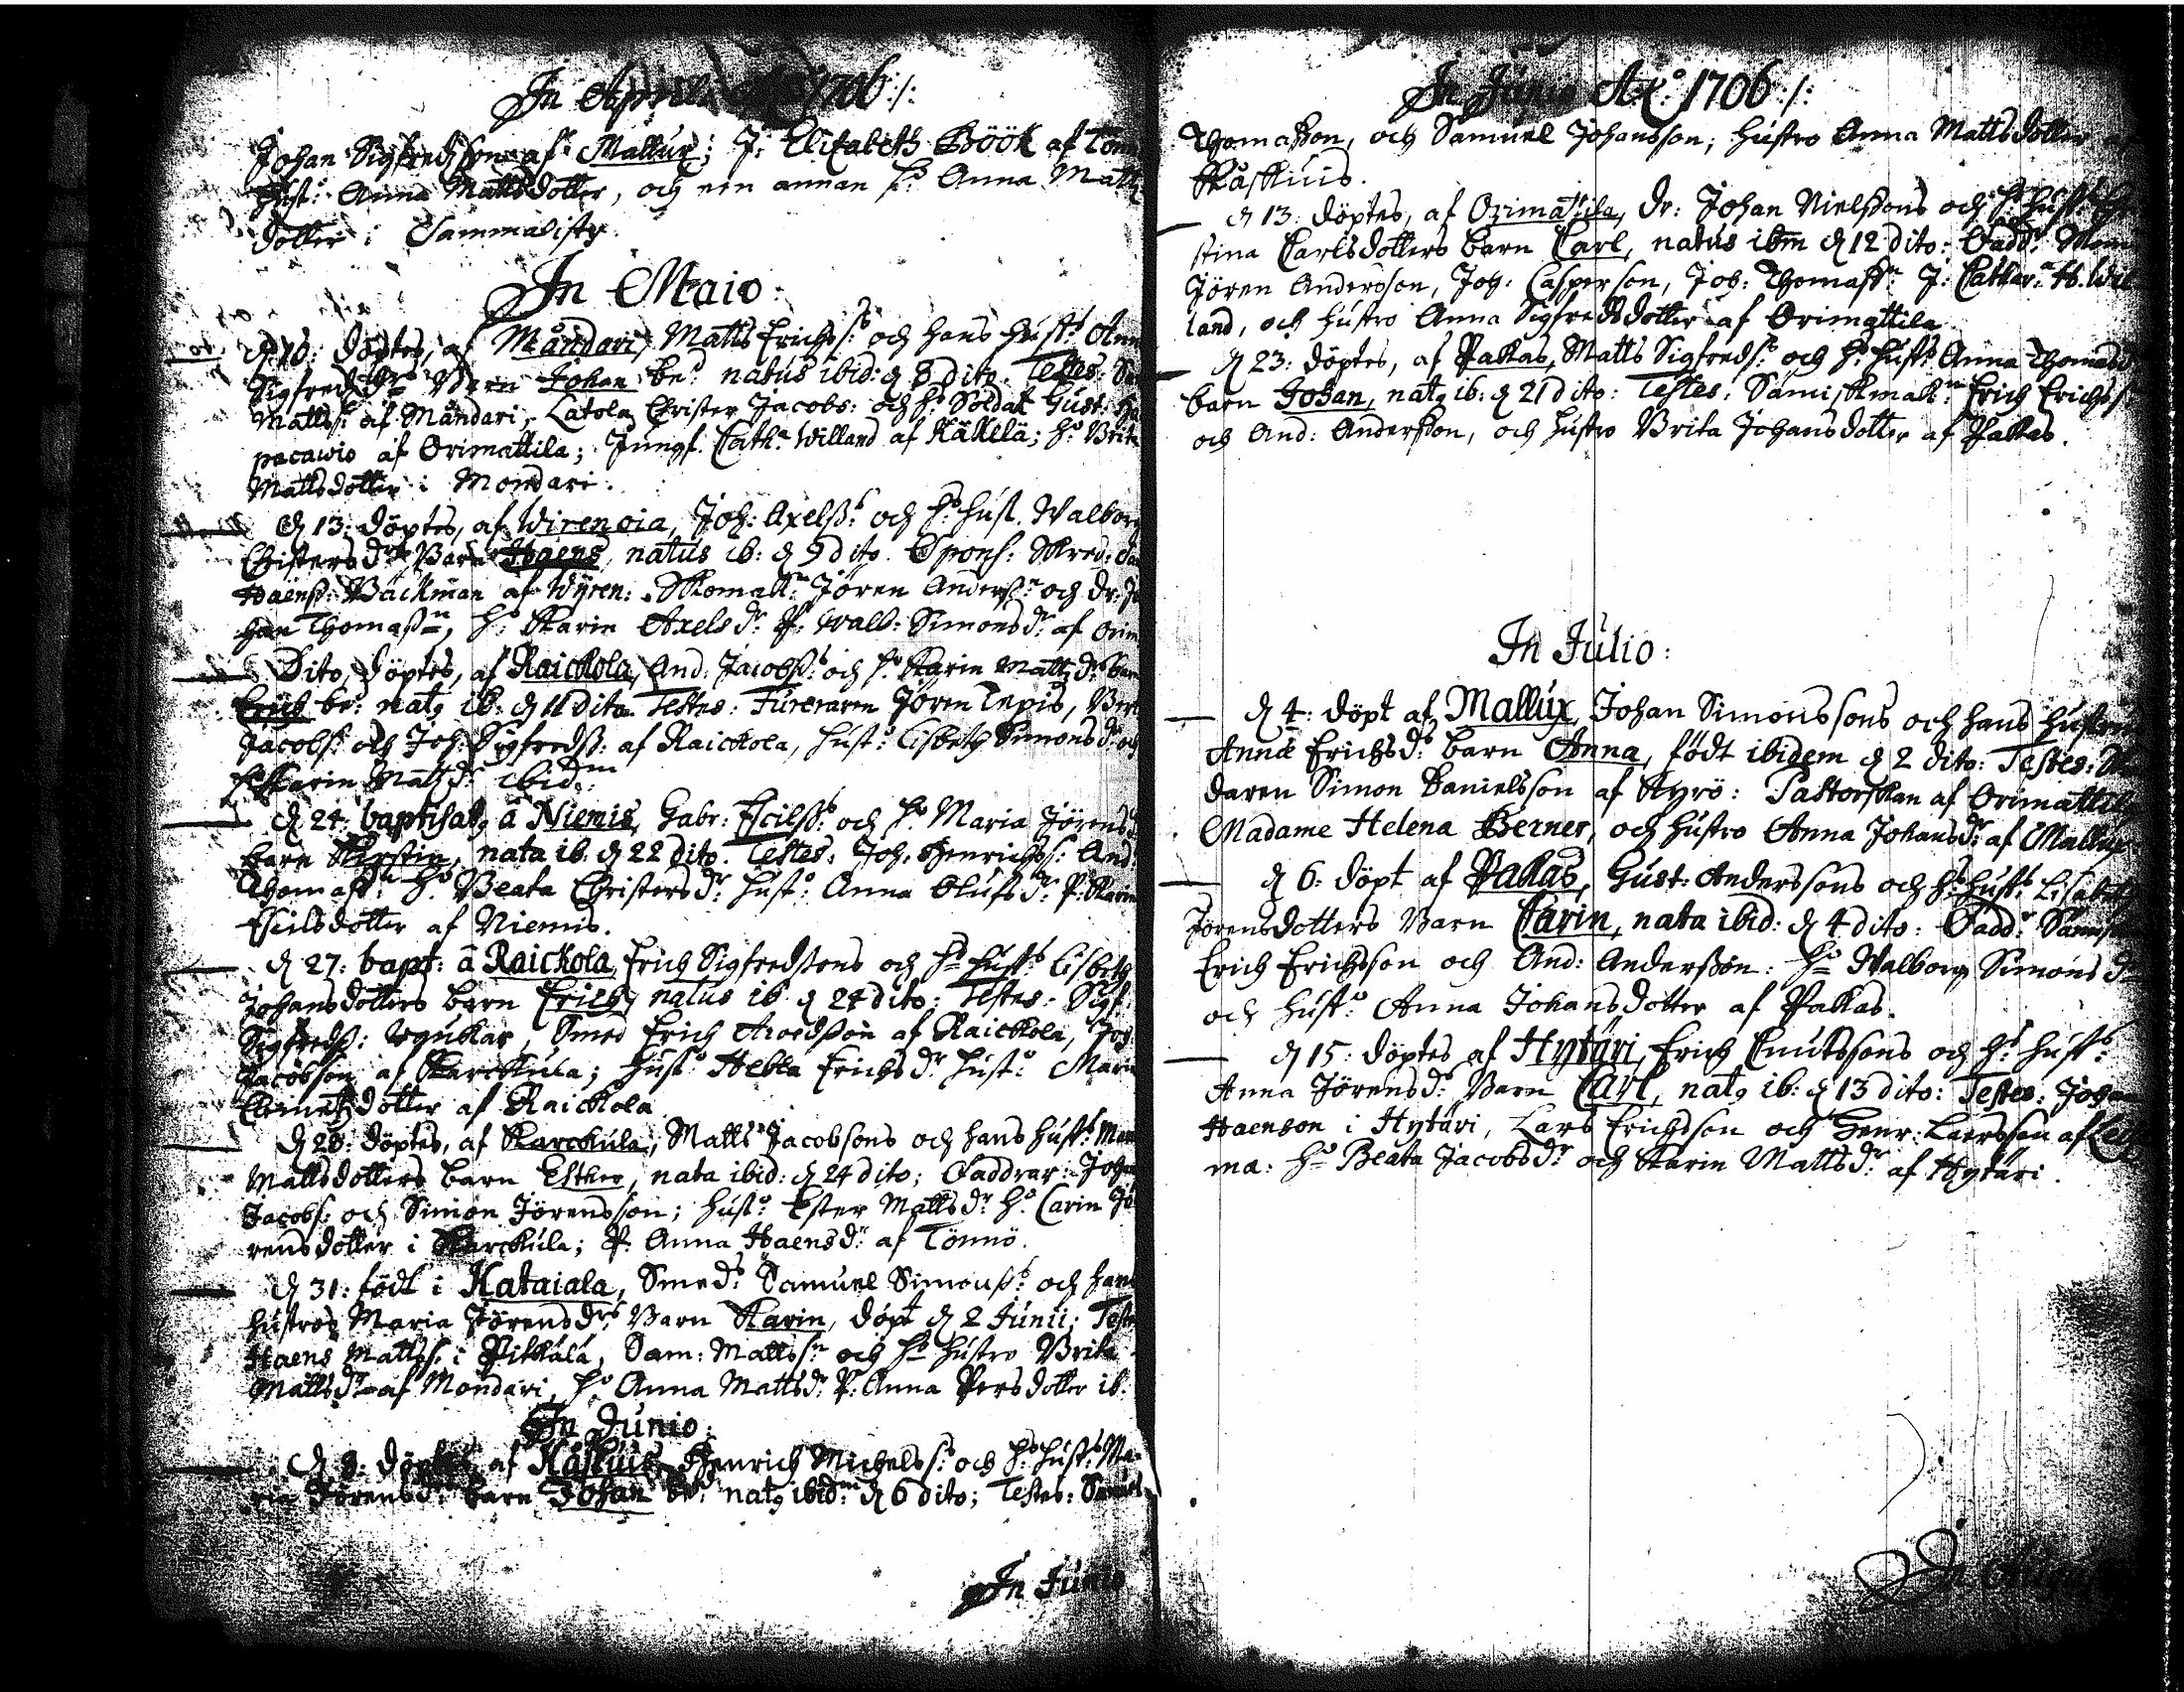 In Aprili 1706:/:
Johan Sigfredsson af Mallux; J: Elizabeth Böök af Tönn
Hust: Anna Mattsdotter, och een annan h:o Anna Matts
dotter i Sammalisto.
In Maio:
d 10: döptes, af Måndari, Matts Erichs s: och hans hust: Ann
Sigfredsd:rs Barn Johan be:d natus ibid: d 8 dito. Testes:
Mattss: af Måndari, Latola Christer Jacobs: och h: Soldat Gust:
pacawio af Orimattila; Jungf. Cath: Willand af Käkelä; h:o Brita
Mattsdotter i Mondari.
d 13: döptes, af Wirenoia, Joh: Axelss: och h:s hust. Walborg
Christersd:rs Barn Haens, natus ib: d 9 dito. Spons: Skred:
Haenss: Bäckman af Wyren: Skomak:n Jören Anderss:n och Dr: Jo
han Thomass:n, h:o Karin Axelsd:r P: Walb: Simonsd:r af Orim
Dito, döptes, af Raickola, And: Jacobss: och h:s Karin Mattsd:rs barn
Erich be:d nat9 ib: d 11 dito. Testes: Fureraren Jören Lepis,
Jacobs: och Joh: Sigfredss: af Raickola, hust:o Lisbeth Simonsd:r och
h:o Karin Mattsd:r ibid:m
d 24: baptisat9 à Niemis, Gabr: Escilss: och h:s Maria Jörensd
barn Kirstin, nata ib: d 22 dito. Testes: Joh: Henrichss: And:
Thomass:n h:o Beata Christersd:r hust:o Anna Olufsd:r P: Karin
Escilsdotter af Niemis.
d 27: bapt: à Raickola, Erich Sigfredssons och h:s hust:s Lisbeth
Johansdotters barn Erich, natus ib. d 24 dito: Testes: Sigf:
Sigfredss: ugnkar, Smed Erich Arvedsson af Raickola, Joh:
Jacobsson af Karckula; hust:o Hebla Erichsd:r hust:o Maria
Clemetsdotter af Raickola.
d 28: döptes, af Karckula, Matts Jacobsons och hans hust:s
Mattsdotters barn Esther, nata ibid: d 24 dito; Faddrar: Johan
Jacobs: och Simon Jörensson; hust:o Ester Mattsd:r h:o Carin Jö
rensdotter i Karckula; P: Anna Haensd:r af Tönnö.
d 31: födt i Kataiala, Smed:s Samuel Simonss: och hans
hustros Maria Jörensd:rs Barn Karin, döpt d 2 Junii; Test
Haens Mattss: i Pitkälä, Sam: Mattss:n och h:s hustro Brita
Mattsd:r af Mondari, h:o Anna Mattsd:r P: Anna Persdotter ib:
In Junio:
d 8: döptes af Kåskuis, Henrich Michelss: och h:s hust:s Ma-
ria Jörensd:rs barn Johan be:d nat9 ibid:m d 6 dito; Testes: Samuel
In Junio
In Junio Ao: 1706:/:
Thomasson, och Samuel Johansson; hustro Anna Mattsdotter
Kåskuis.
d 13: döptes, af Orimattila, Dr: Johan Nielssons och h:s hust:s
stina Carlsdotters barn Carl, natus ib:m d 12 dito: Fadd:r
Jören Andersson, Joh: Casperson, Joh: Thomass:n J: Cathar: H. Wil
land, och hustro Anna Sigfredsdotter af Orimattila
d 23: döptes, af Pakas, Matts Sigfreds: och h:s hust:s Anna Thomasd
barn Johan, nat9 ib: d 21 dito: Testes: Sämiskmak:n Erich Erichss:
och And: Andersson, och hustro Brita Johansdotter af Pakas.
In Julio:
d 4: döpt af Mallux, Johan Simonssons och hans hustros
Annæ Erichsd:s barn Anna, födt ibidem d 2 dito: Testes:
daren Simon Danielsson af Kyrö: Pastorskan af Orimattila
Madame Helena Berner, och hustro Anna Johansd:r af Mallux
d 6: döpt af Pakas, Gust: Anderssons och h:s hust:s Lisabeth
Jörensdotters Barn Carin, nata ibid: d 4 dito: Fadd:r
Erich Erichsson och And: Andersson: h:o Walborg Simonsd:r
och hust:o Anna Johansdotter af Pakas.
d 15: döptes af Hytäri, Erich Cnutssons och h:s hust:s
Anna Jörensd:s Barn Carl, nat9 ib: d 13 dito: Testes: Johan
Haenson i Hytäri, Lars Erichsson och Henr: Larsson af
ma: h:o Beata Jacobsd:r och Karin Mattsd:r af Hytäri.
In